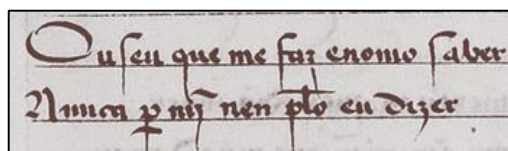 Ouseu que me faz enomo saber
Nunca ꝑ mĩ nen pło eu dizer